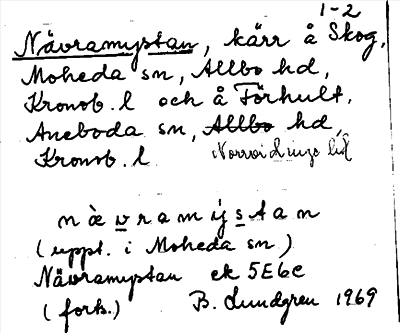 1-2
Nävramystan, kärr å Skog,
Moheda sn, Allbo hd,
Kronob. l och å Förhult,
Aneboda sn, Allbo hd,
Kronob. l. Norrvidinge hd
nä̀vramỳstan
(uppt. i Moheda sn)
Nävramystan ek 5E6e
(forts.) B. Lundgren 1969